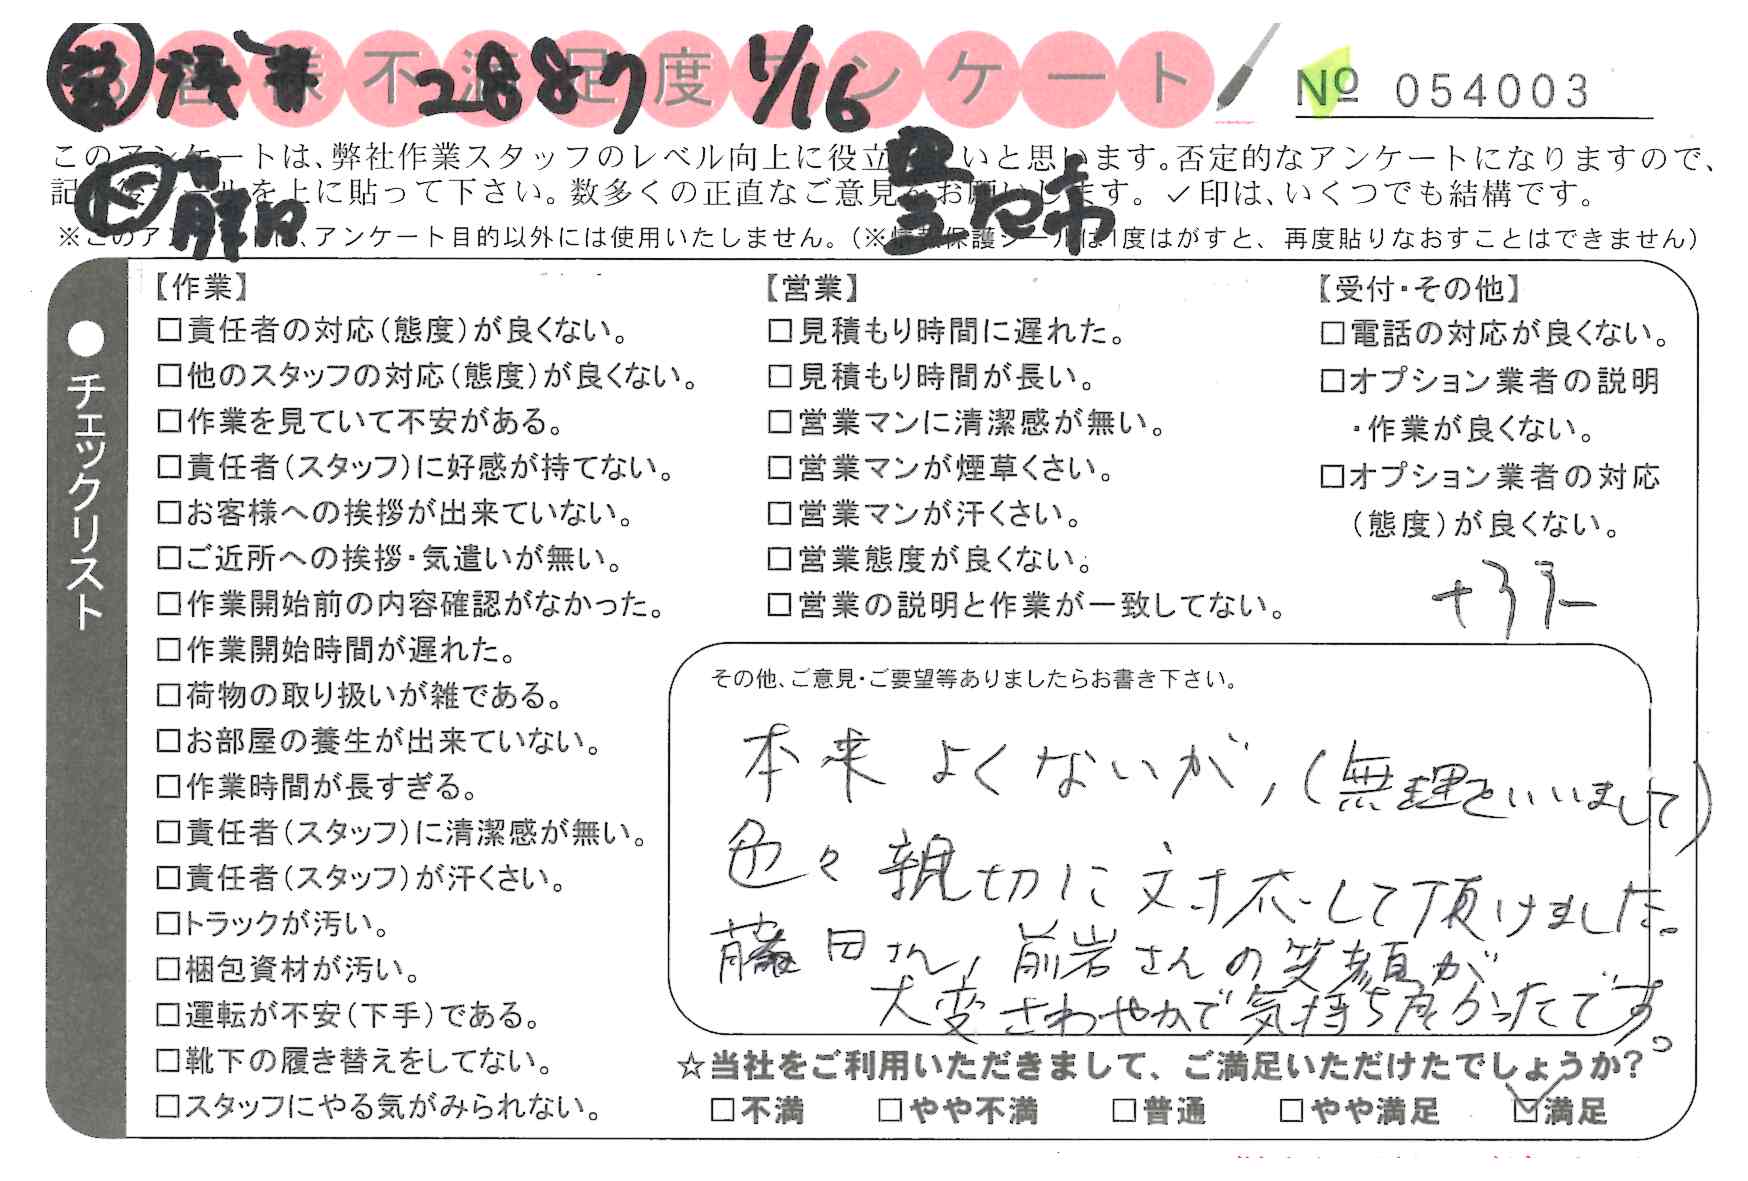 お客様不満足度アンケート
2887 1/16
№ 054003
このアンケートは、弊社作業スタッフのレベル向上に役立いと思います。否定的なアンケートになりますので、
記後シールを上に貼って下さい。数多くの正直なご意見をお願いします。✓印は、いくつでも結構です。
※このアンケートは、アンケート目的以外には使用いたしません。（※情報保護シールは1度はがすと、再度貼りなおすことはできません）
豊中市
●チェックリスト
【作業】
□責任者の対応（態度）が良くない。
□他のスタッフの対応（態度）が良くない。
□作業を見ていて不安がある。
□責任者（スタッフ）に好感が持てない。
□お客様への挨拶が出来ていない。
□ご近所への挨拶・気遣いが無い。
□作業開始前の内容確認がなかった。
□作業開始時間が遅れた。
□荷物の取り扱いが雑である。
□お部屋の養生が出来ていない。
□作業時間が長すぎる。
□責任者（スタッフ）に清潔感が無い。
□責任者（スタッフ）が汗くさい。
□トラックが汚い。
□梱包資材が汚い。
□運転が不安（下手）である。
□靴下の履き替えをしてない。
□スタッフにやる気がみられない。
【営業】
□見積もり時間に遅れた。
□見積もり時間が長い。
□営業マンに清潔感が無い。
□営業マンが煙草くさい。
□営業マンが汗くさい。
□営業態度が良くない。
□営業の説明と作業が一致してない。
【受付・その他】
□電話の対応が良くない。
□オプション業者の説明
・作業が良くない。
□オプション業者の対応
（態度）が良くない。
その他、ご意見・ご要望等ありましたらお書き下さい。
本来よくないが、（無理をいいまして）
色々親切に対応して頂けました。
藤田さん、前岩さんの笑顔が
大変さわやかで気持ち良かったです。
☆当社をご利用いただきまして、ご満足いただけたでしょうか?
□不満 □やや不満 □普通 □やや満足 ☑満足